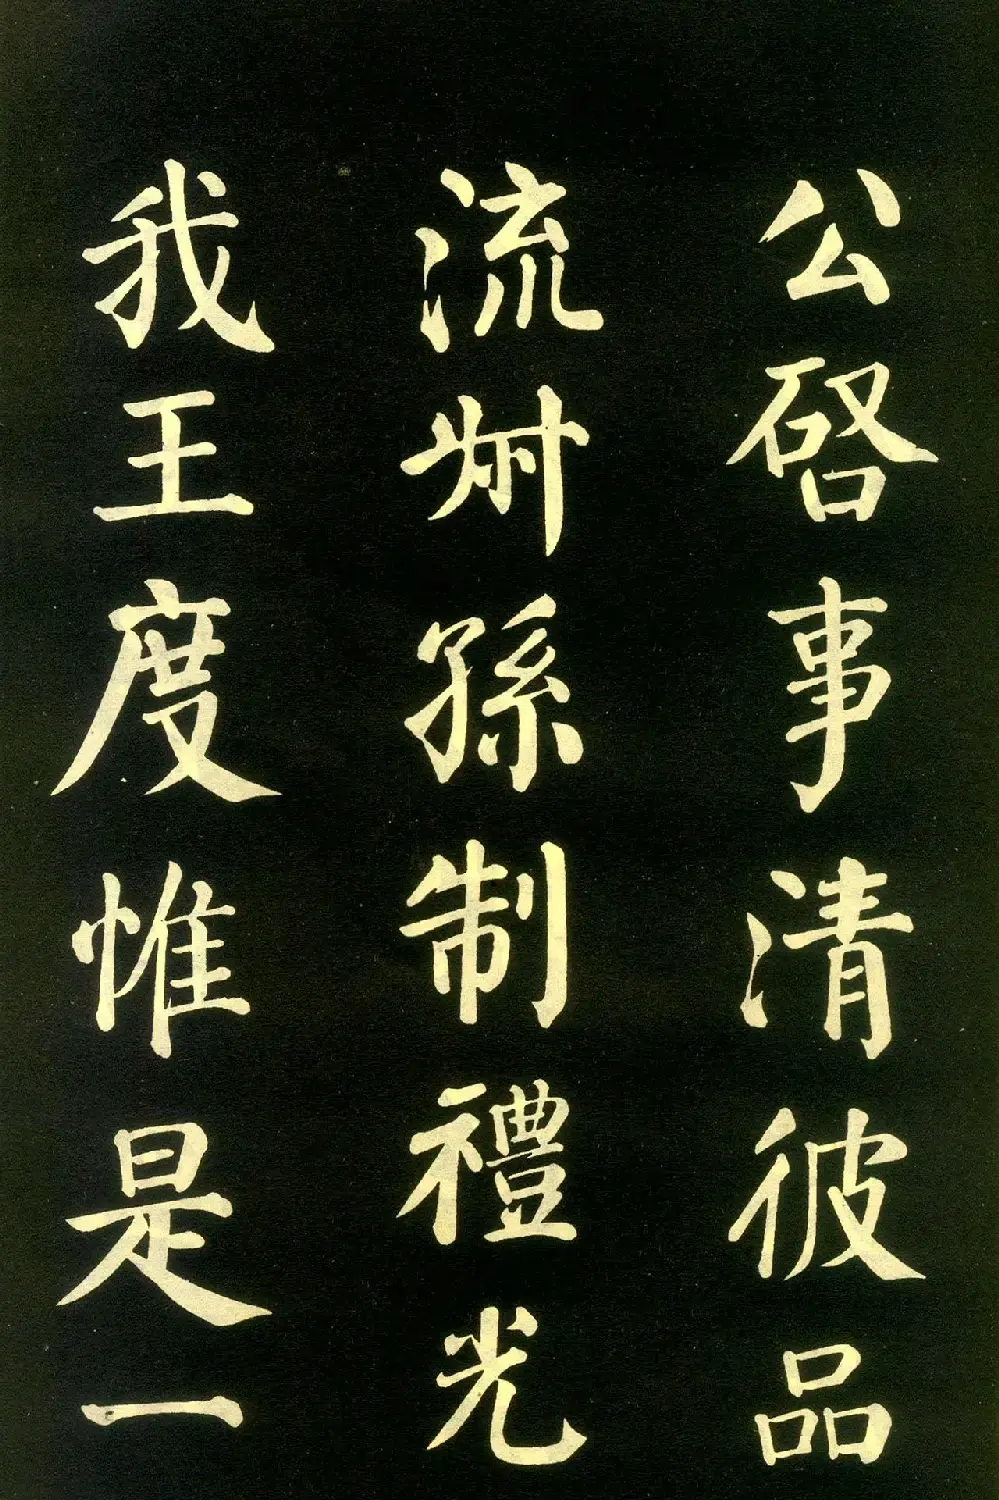 公啓事清彼品
流州孫制禮光
我王度惟是一